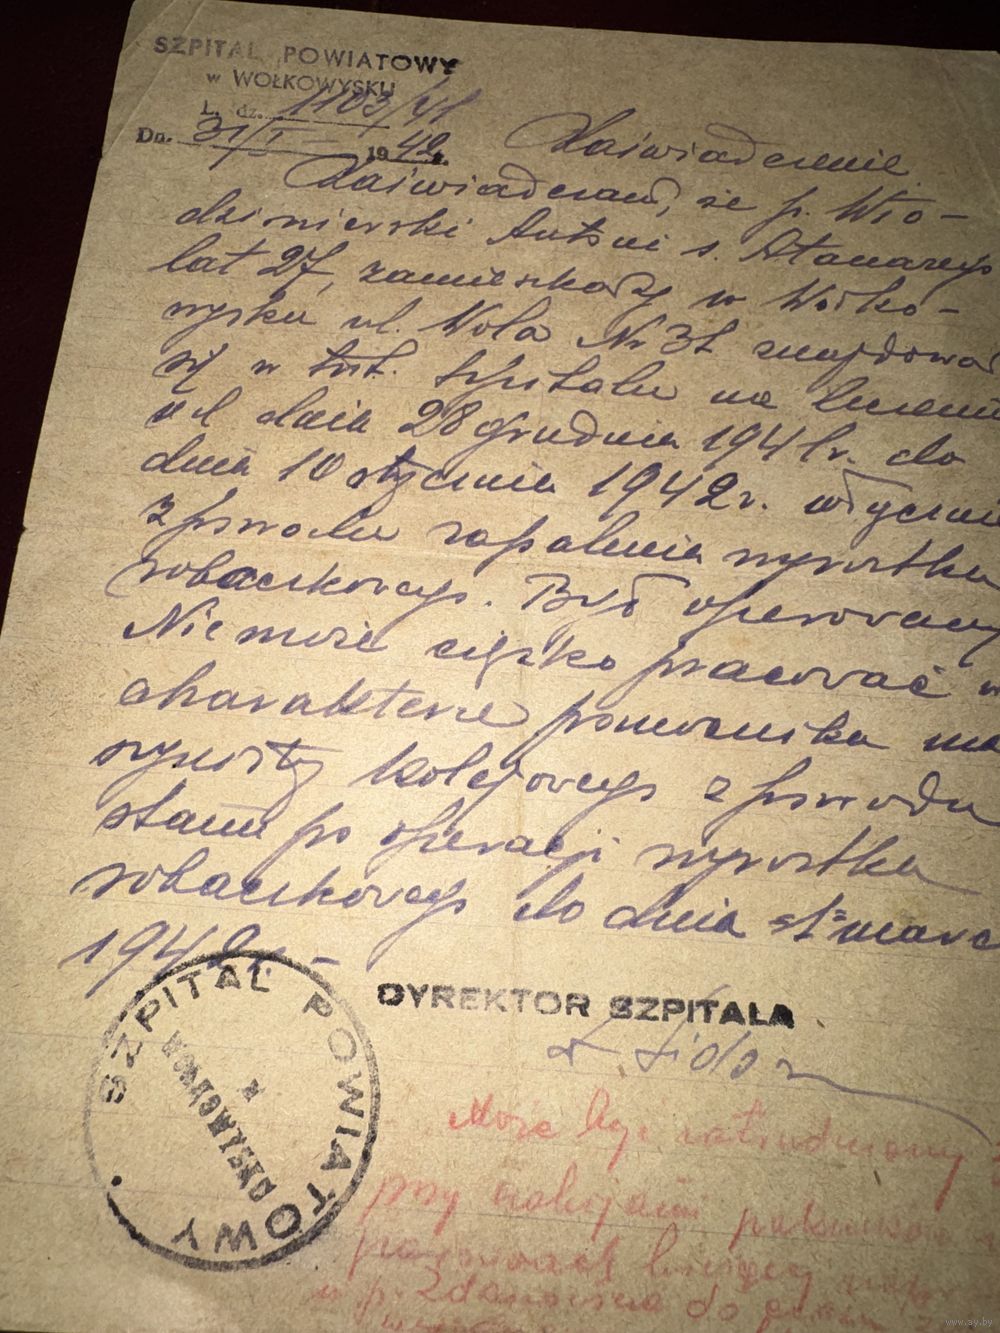 SZPITAL POWIATOWY
w WOŁKOWYSKU
L. dz. 1103/41
Dn. 31/I 1942 r.
Zaświadczenie.
Zaświadczam, że p. Wło-
dzimierski Antoni s. Atanazego
lat 27, zamieszkały w Wołko-
wysku ul. Wola Nr 31 znajdował
się w tut. szpitalu na leczeniu
od dnia 28 grudnia 1941 r. do
dnia 10 stycznia 1942 r. włączni
z powodu zapalenia wyrostka
robaczkowego. Był operowany
Nie może ciężko pracować w
charakterze pomocnika ma
szynisty kolejowego z powodu
stanu po operacji wyrostka
robaczkowego do dnia 1 marc
1942 r. -
DYREKTOR SZPITALA
SZPITAL POWIATOWY
w
WOŁKOWYSKU
Może być zatrudniony
przy
pociągach
w p. do